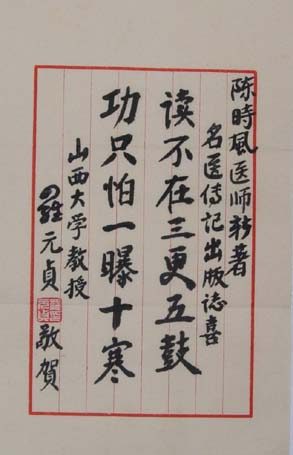 陈時風医师新著
名医传记出版誌喜
读不在三更五鼓
功只怕一曝十寒
山西大学教授
羅元貞 敬賀